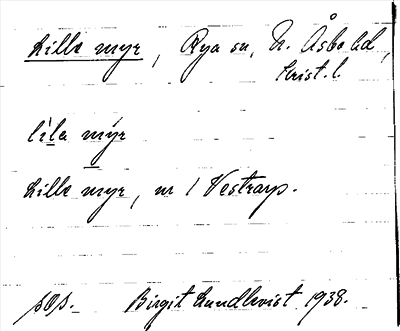 Lille myr, Rya sn, N. Åsbo hd,
Krist. l.
lìla mýr
Lille myr, nr 1 Vestrarp.
sOs. Birgit Lundkvist 1938.